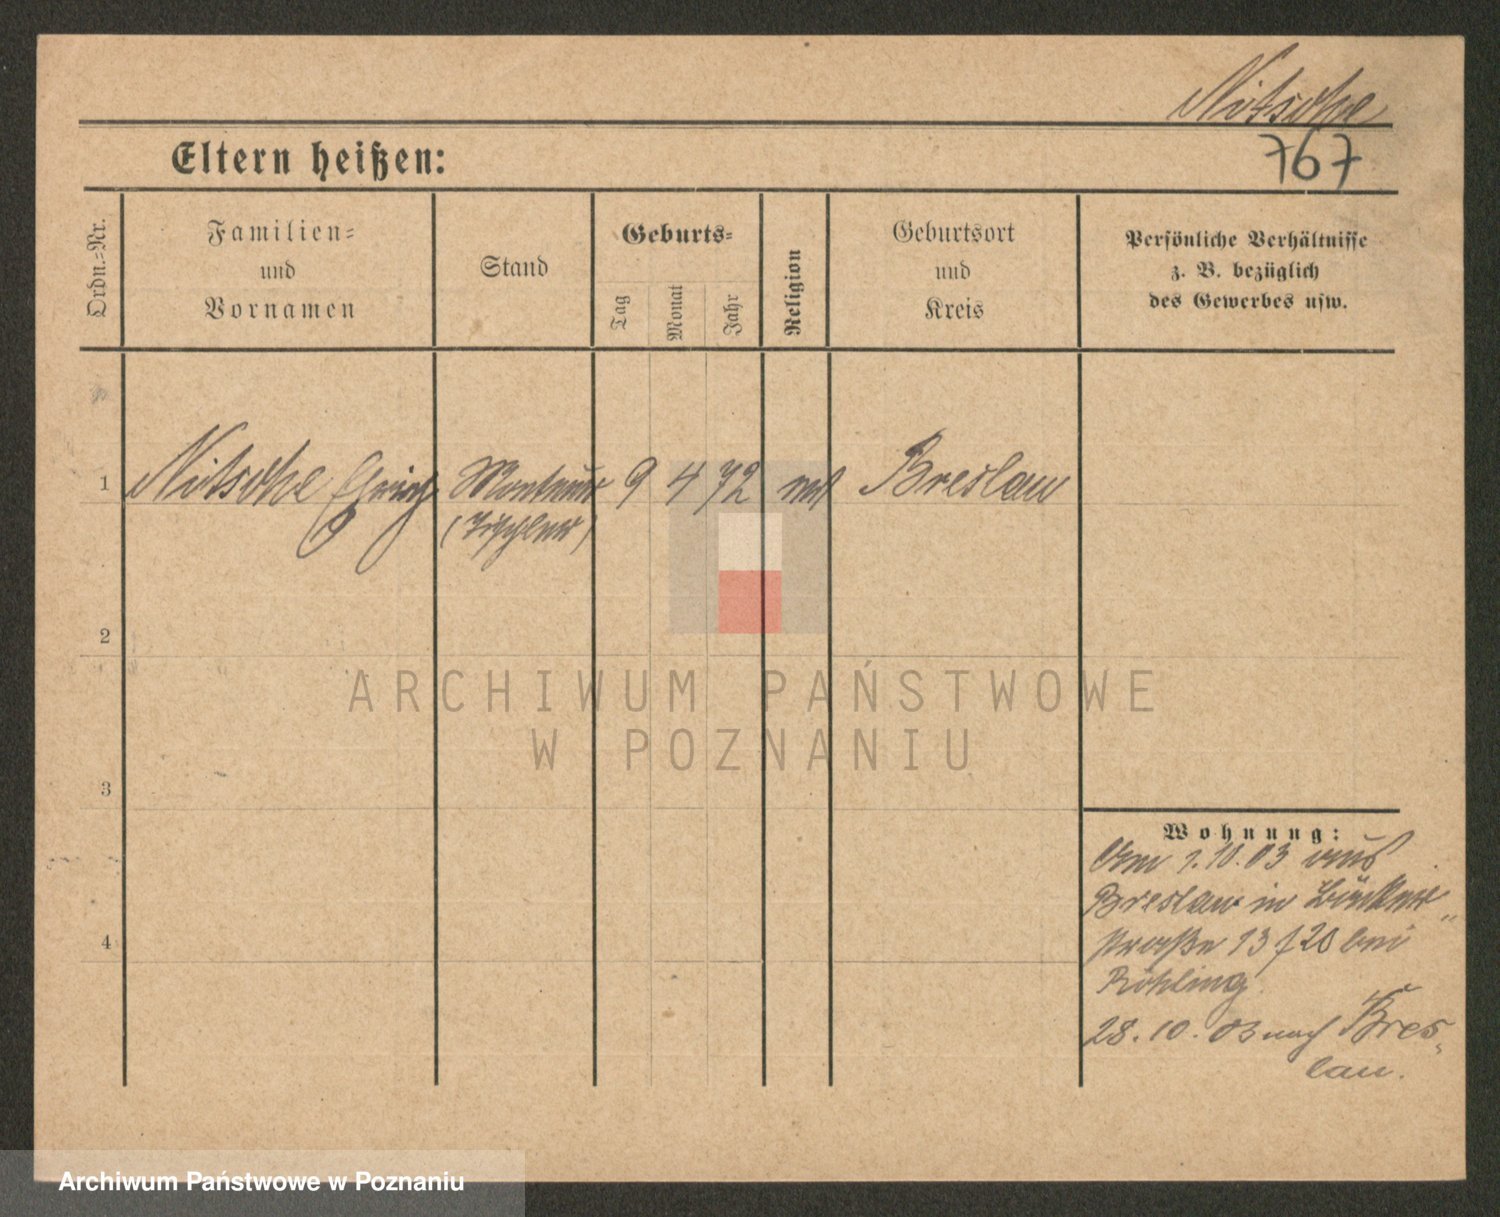 Nitsche
767
Eltern heißen:
Ordn.-Nr.
Familien-
und
Vornamen
Stand
Geburts-
Tag
Monat
Jahr
Religion
Geburtsort
und
Kreis
Persönliche Verhältnisse
z. B. bezüglich
des Gewerbes usw.
1 Nitsche Monteur 9 4 72 Breslau
(Tischler)
2
3
4
Wohnung:
Am 1.10.03 aus
Breslau in
straße 13 f 20 bei
Röhling
28.10.03 nach Bres-
lau.
ARCHIWUM PAŃSTWOWE
W POZNANIU
Archiwum Państwowe w Poznaniu